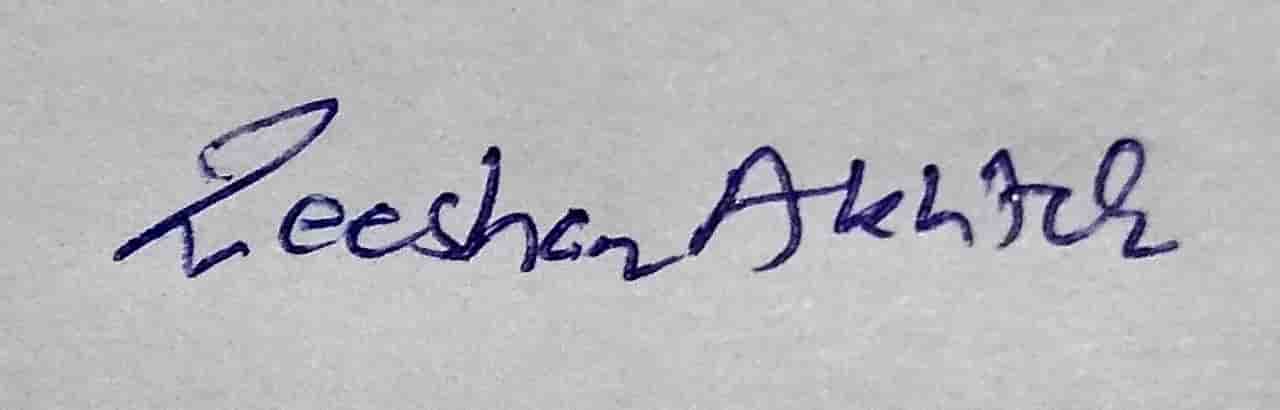 Zeeshan Akhter